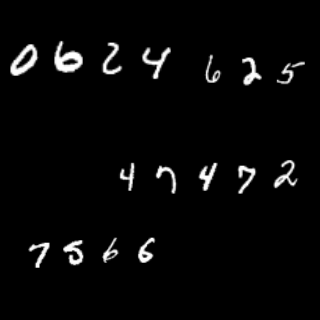 0624 625
47472
7566